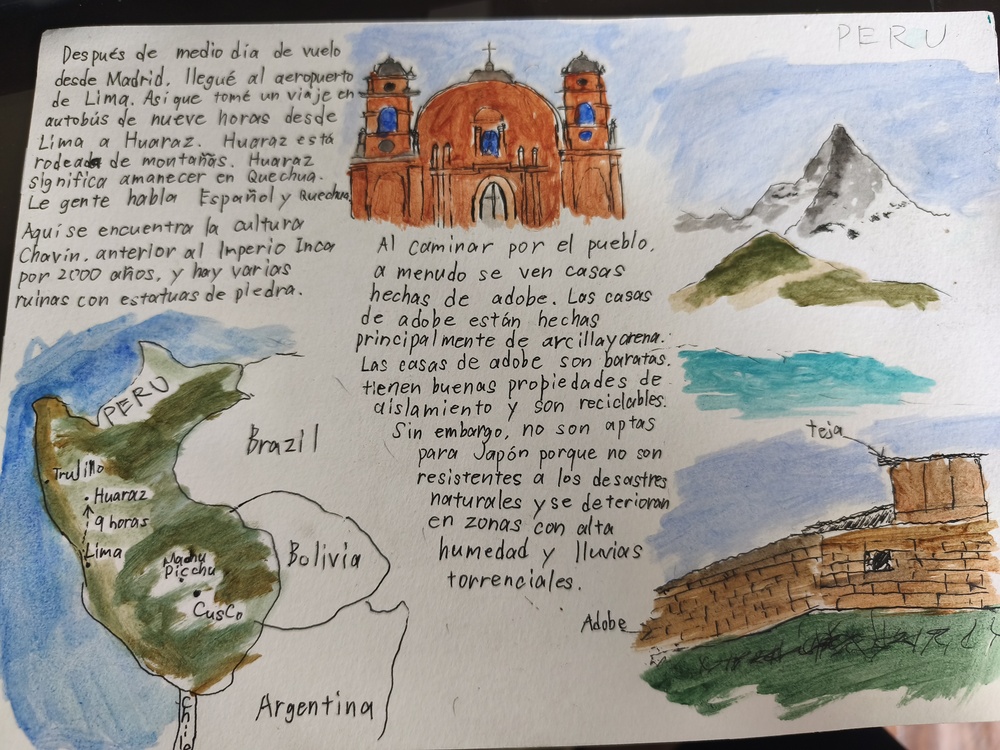 PERU
Después de medio día de vuelo
desde Madrid, llegué al aeropuerto
de Lima. Así que tomé un viaje en
autobús de nueve horas desde
Lima a Huaraz. Huaraz está
rodeada de montañas. Huaraz
significa amanecer en Quechua.
Le gente habla Español y Quechua.
Aquí se encuentra la cultura
Chavín, anterior al Imperio Inca
por 2000 años, y hay varias
ruinas con estatuas de piedra.
Al caminar por el pueblo,
a menudo se ven casas
hechas de adobe. Las casas
de adobe están hechas
principalmente de arcilla y arena.
Las casas de adobe son baratas,
tienen buenas propiedades de
aislamiento y son reciclables.
Sin embargo, no son aptas
para Japón porque no son
resistentes a los desastres
naturales y se deterioran
en zonas con alta
humedad y lluvias
torrenciales.
PERU
Brazil
Trujillo
Huaraz
9 horas
Lima
Machu
Picchu
Cusco
Bolivia
Argentina
Chile
teja
Adobe